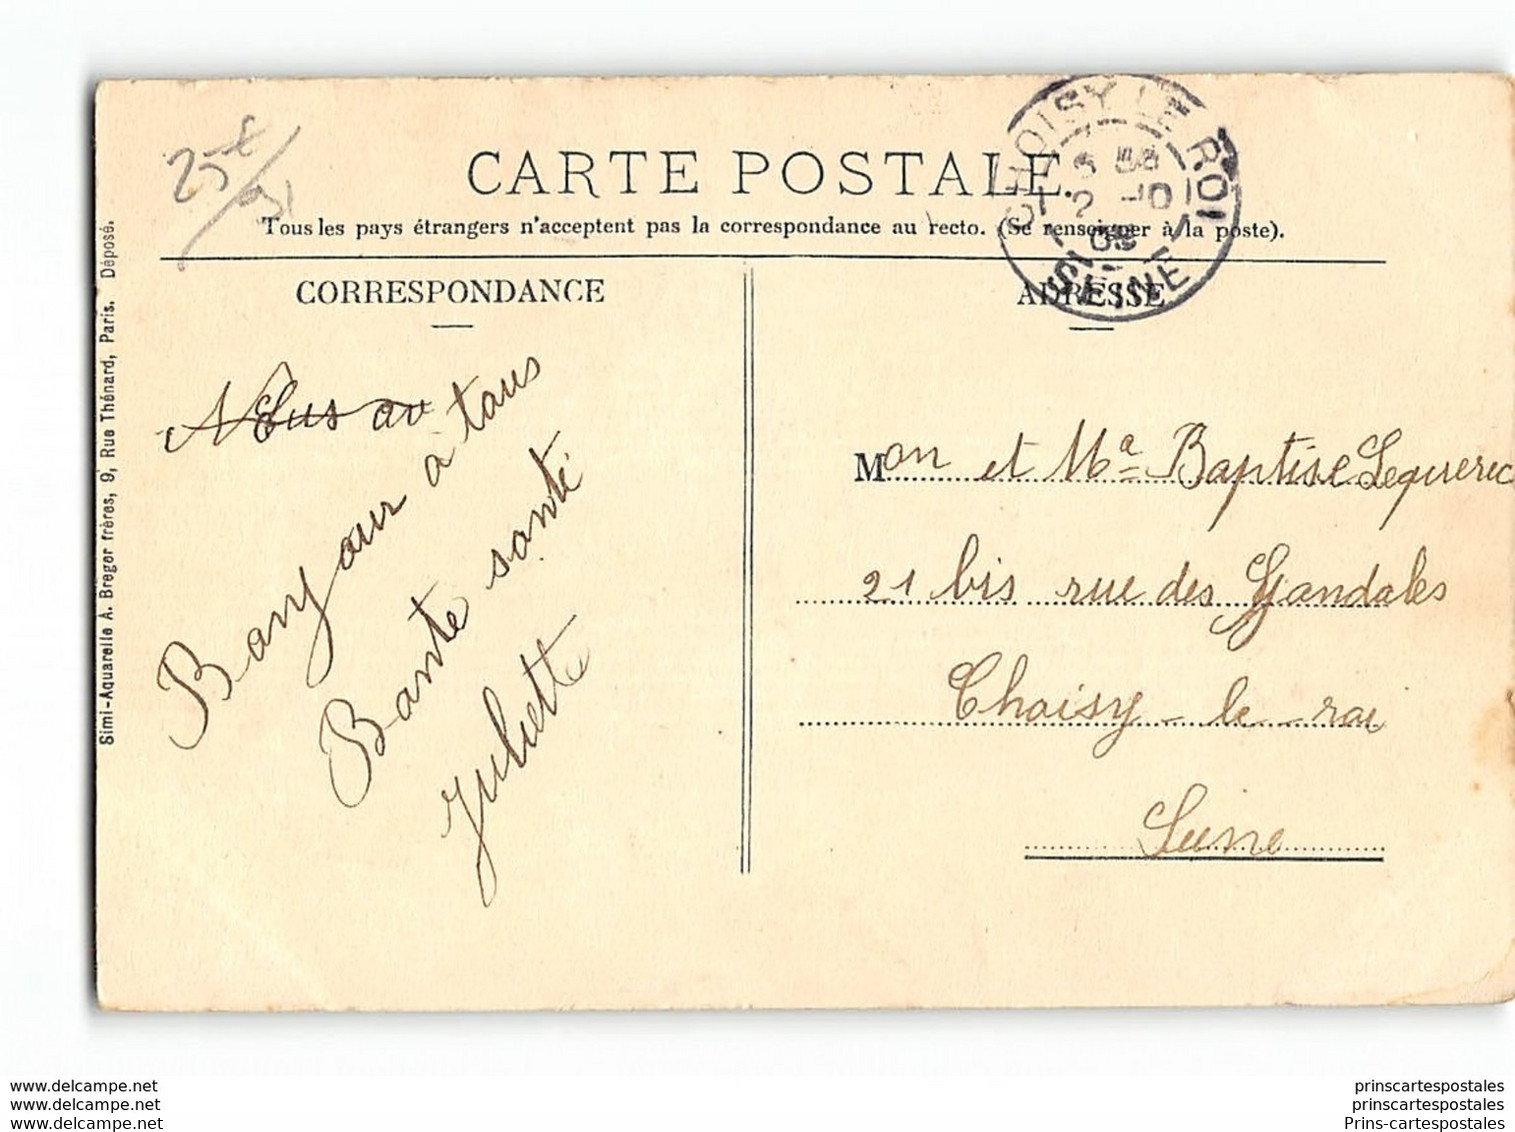 25€
/91
CARTE POSTALE.
Tous les pays étrangers n'acceptent pas la correspondance au recto. (Se renseigner à la poste).
CHOISY LE ROI
SEINE
CORRESPONDANCE
ADRESSE
Simi-Aquarelle A. Breger frères, 9, Rue Thénard, Paris. Déposé.
Banjour à tous
Bante santé
Juliette
Mon et Ma Baptise Lequerec
21 bis rue des Gandales
Choisy-le-roi
Seine
www.delcampe.net
www.delcampe.net
www.delcampe.net
prinscartespostales
prinscartespostales
Prins-cartespostales